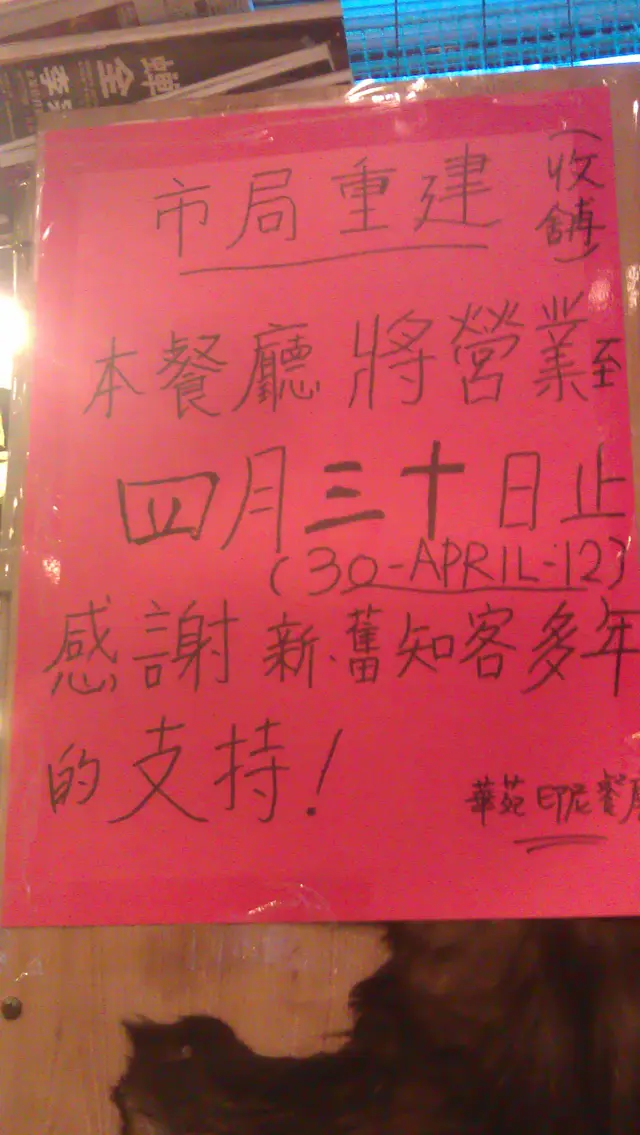 市局重建
(收舖)
本餐廳將營業至
四月三十日止
(30-APRIL-12)
感謝新、舊知客多年
的支持!
華苑印尼餐廳